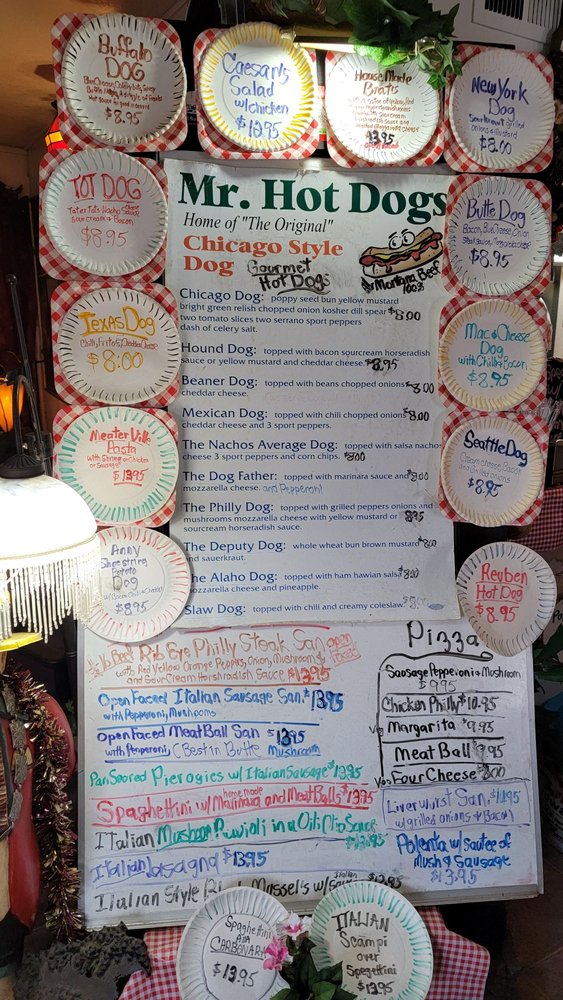 Buffalo
DOG
$8.95
Caesar's
Salad
w/chicken
$12.95
House Made
Brats
$3.95
New York
Dog
Sauerkraut Grilled
Onions & Mustard
$8.00
TOT DOG
Tater Tots, Nacho Cheese Sauce
Sour Cream & Bacon
$8.95
Mr. Hot Dogs
Home of "The Original"
Chicago Style
Dog
Gourmet
Hot Dogs
Montana Beef
100%
Butte Dog
Bacon, Blue Cheese, Onion
$8.95
Chicago Dog: poppy seed bun yellow mustard
bright green relish chopped onion kosher dill spear
two tomato slices two serrano sport peppers
dash of celery salt.
$8.00
Texas Dog
Chilli, Fritos, Cheddar Cheese
$8:00
Hound Dog: topped with bacon sourcream horseradish
sauce or yellow mustard and cheddar cheese. $8.95
Mac & Cheese
Dog
with Chilli & Bacon
$8.95
Beaner Dog: topped with beans chopped onions $8.00
cheddar cheese.
Mexican Dog: topped with chili chopped onions $8.00
cheddar cheese and 3 sport peppers.
Meater Ville
Pasta
with Shrimp or Chicken
or Sausage
$13.95
The Nachos Average Dog: topped with salsa nacho
cheese 3 sport peppers and corn chips. $8.00
Seattle Dog
Cream cheese, Bacon
and Grilled onions
$8.95
The Dog Father: topped with marinara sauce and $8.00
mozzarella cheese. and Pepperoni
The Philly Dog: topped with grilled peppers onions and
mushrooms mozzarella cheese with yellow mustard or $8.95
sourcream horseradish sauce.
The Deputy Dog: whole wheat bun brown mustard $8.00
and sauerkraut.
Andy
Shoestring
Potato
Dog
w/ Bacon Chili & Cheddar
$8.95
The Alaho Dog: topped with ham hawian salsa $8.00
mozzarella cheese and pineapple.
Reuben
Hot Dog
$8.95
Slaw Dog: topped with chili and creamy coleslaw. $8.00
Beef Rib Eye Philly Steak San
Open Faced
with Red Yellow Orange Peppers, Onion, Mushrooms
and Sour Cream Horshradish Sauce $13.95
Open Faced Italian Sausage San. $13.95
with Pepperoni, Mushrooms
Open Faced Meat Ball San $13.95
with Pepperoni (Best in Butte Mushroom
Pan Seared Pierogies w/ Italian Sausage $13.95
Spaghettini w/ home made Marinara and Meat Balls $13.95
Italian Mushroom Ravioli in a Oil Sauce
$13.95
Italian Lasagna $13.95
Italian Style Mussel's w/ Italian $13.95
Pizza
Sausage Pepperoni & Mushroom
$9.95
Chicken Philly $10.95
Margarita $9.95
Meat Ball 9.95
Four Cheese $8.00
Liverwurst San. $10.95
w/ grilled onions & Bacon
Polenta w/ sautee of
Mush & Sausage
$13.95
Spaghettini
ALLA
CARBONARA
$13.95
ITALIAN
Scampi
over
Spegettini
$13.95